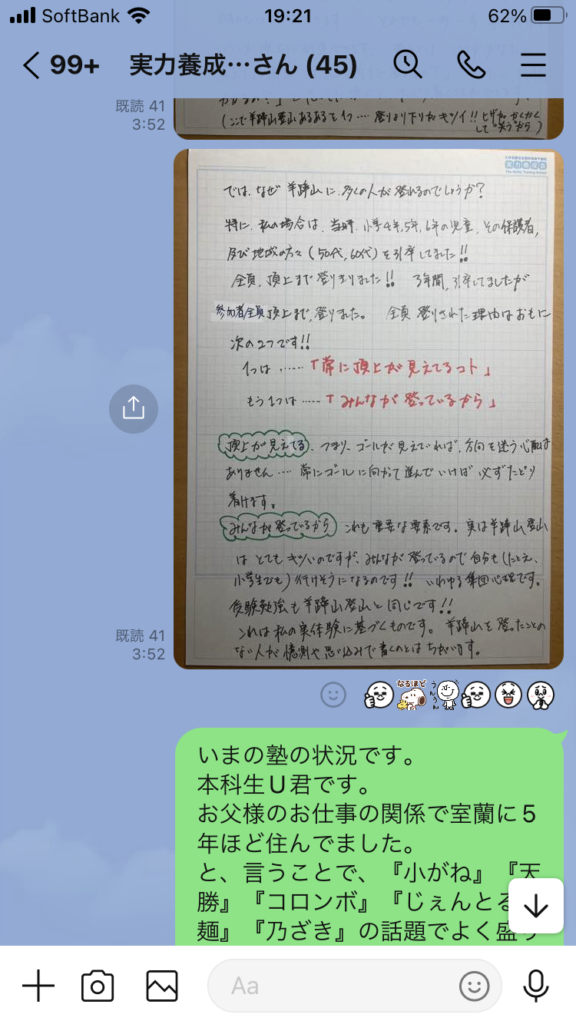 SoftBank 19:21 62%
99+ 実力養成…さん (45)
(ここで羊蹄山登山あるあるを1つ.... 登りより下りがキツイ!! ヒザがガクガクして笑うから)
既読 41
3:52
では、なぜ 羊蹄山に、多くの人が登れるのでしょうか?
特に、私の場合は、当時、小学4年、5年、6年の児童、その保護者、
及び地域の方々(50代、60代)を引率してました!!
全員、頂上まで登りきりました!! 3年間、引率してましたが
参加者全員頂上まで、登りました。 全員 登りきれた理由はおもに
次の2つです!!
1つは ……「常に頂上が見えてるコト」
もう1つは ……「みんなが登っているから」
頂上が見えてる、つまり、ゴールが見えていれば、方向を迷う心配は
ありません… 常にゴールに向かって進んでいけば 必ずたどり
着けます。
みんなが登っているから これも重要な要素です。実は羊蹄山登山
は とてもキツいのですが、みんなが登っているので自分も(たとえ、
小学生でも)行けそうになるのです!! いわゆる集団心理です。
受験勉強も羊蹄山登山と同じです!!
これは私の実体験に基づくものです。羊蹄山を登ったことの
ない人が憶測や思い込みで書くのとはちがいます。
既読 41
3:52
なるほど
うんうん
いまの塾の状況です。
本科生U君です。
お父様のお仕事の関係で室蘭に5
年ほど住んでました。
と、言うことで、『小がね』『天
勝』『コロンボ』『じぇんとる
麺』『乃ざき』の話題でよく盛り
Aa